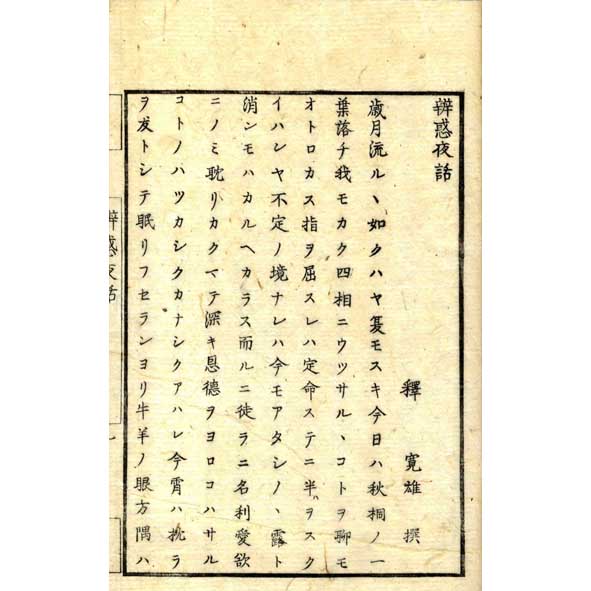 辨惑夜話
釋 寛雄 撰
歳月流ルヽ如クハヤ夏モスキ今日ハ秋桐ノ一
葉落チ我モカク四相ニウツサルヽコトヲ聊モ
オトロカス指ヲ屈スレハ定命ステニ半ハヲスク
イハレヤ不定ノ境ナレハ今モアタシノヽ露ト
消ンモハカルヘカラス而ルニ徒ラニ名利愛欲
ニノミ耽リカクマテ深キ恩德ヲヨロコハサル
コトノハツカシクカナシクアハレ今霄ハ枕ラ
ヲ友トシテ眠リフセランヨリ牛羊ノ眼方隅ハ
辨惑夜話